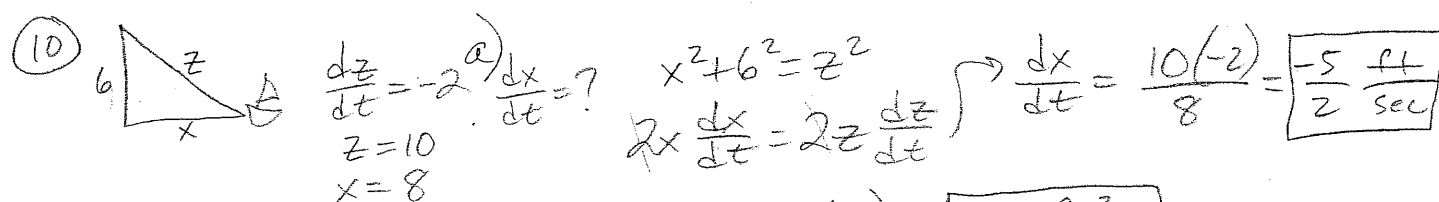 10
6 z x
dz/dt = -2 a) dx/dt = ?
z = 10
x = 8
x² + 6² = z²
2x dx/dt = 2z dz/dt → dx/dt = 10(-2)/8 = -5/2 ft/sec